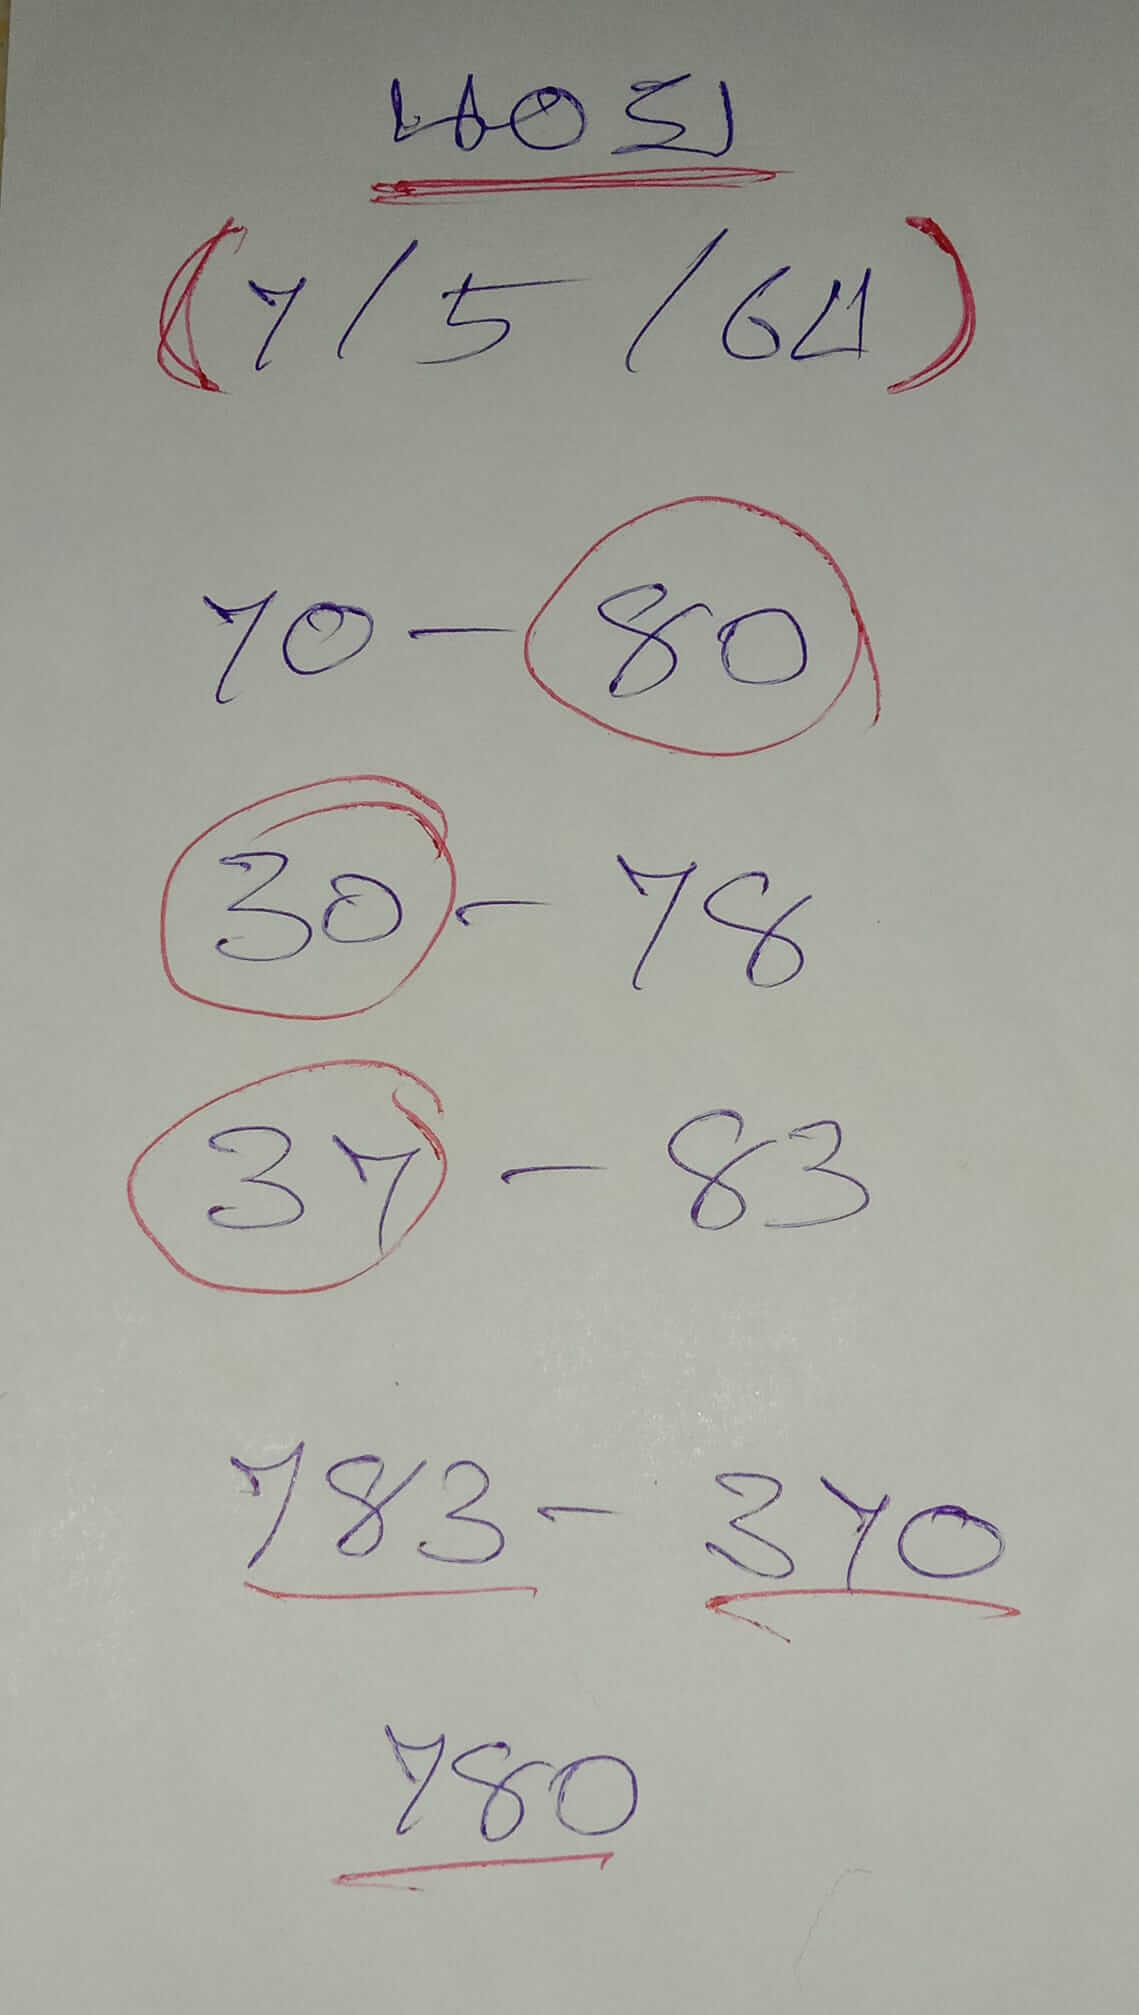 นอย
(7/5/64)
70 - 80
30 - 78
37 - 83
783 - 370
780